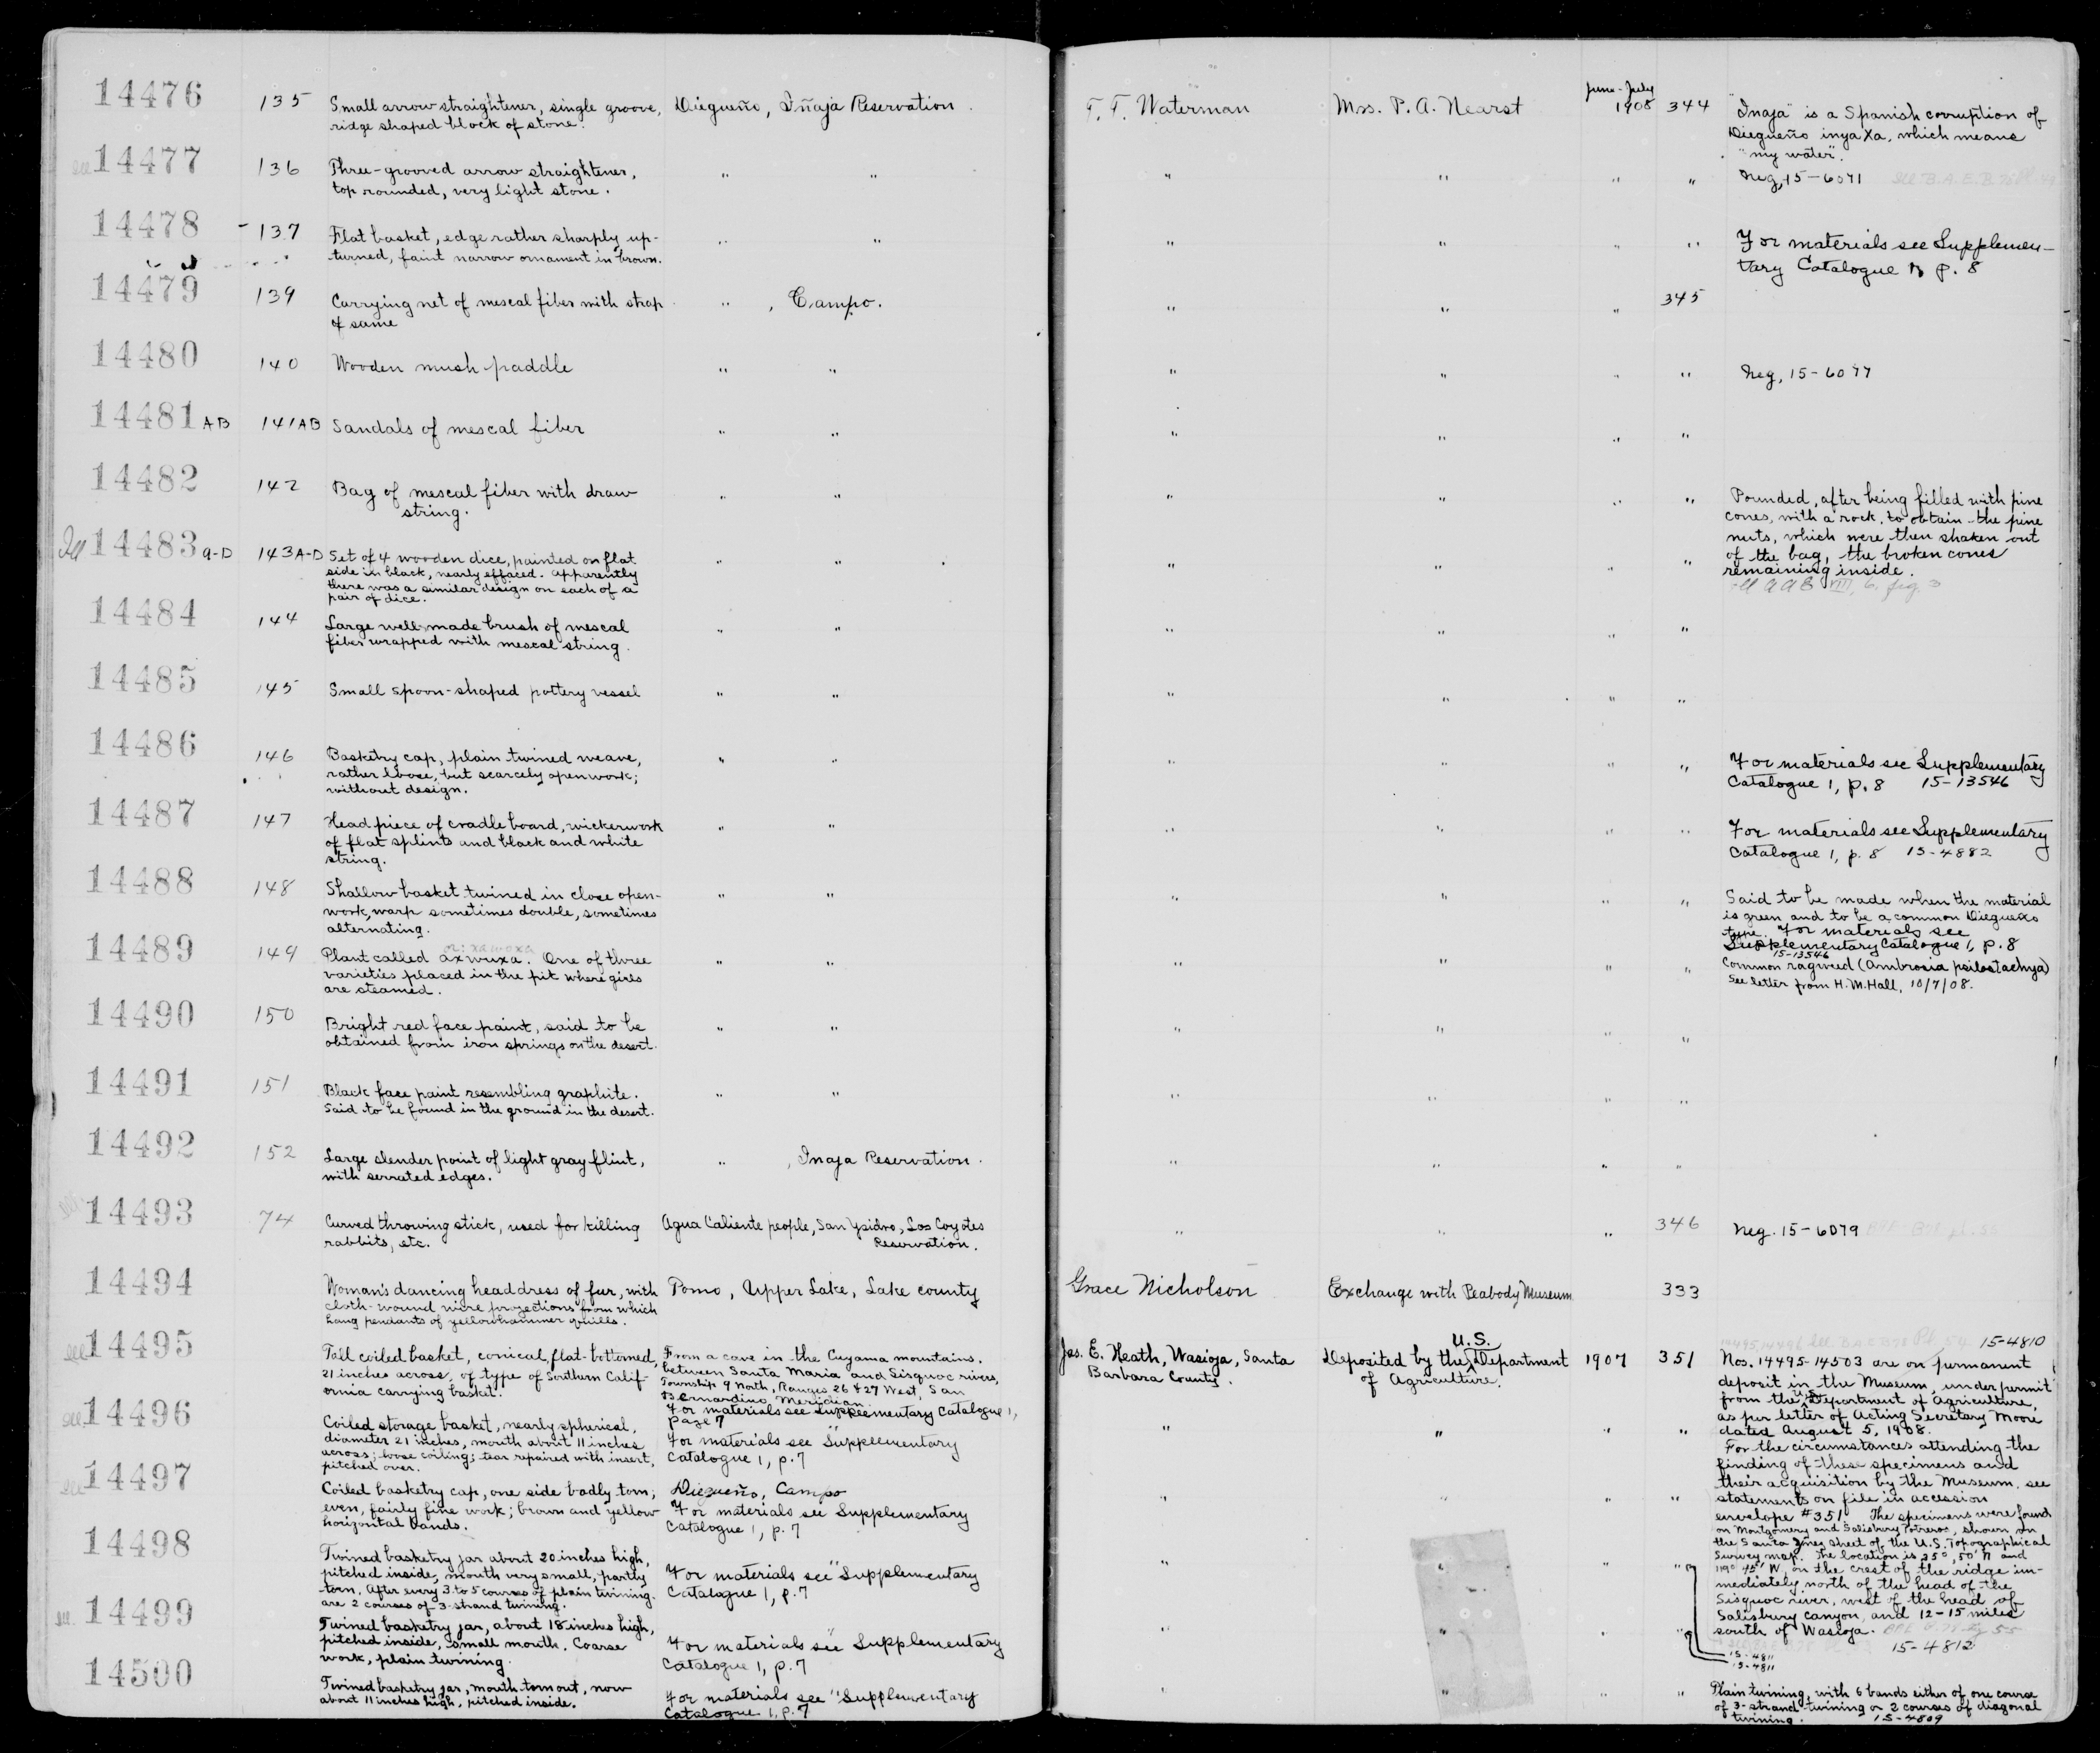 14476 135 Small arrow straightener, single groove, Diegueño, Iñaja Reservation. T. T. Waterman Mrs. P. A. Hearst June-July 1908 344 "Inaja" is a Spanish corruption of
ridge shaped block of stone. Diegueño inyaxa, which means
"my water".
see 14477 136 Three-grooved arrow straightener, " " " " " " Neg. 15-6071 see B.A.E.B. 78
top rounded, very light stone.
14478 137 Flat basket, edge rather sharply up- " " " " " " For materials see Supplemen-
turned, faint narrow ornament in brown. tary Catalogue 1, p. 8
14479 139 Carrying net of mescal fiber with strap " , Campo. " " " 345
of same
14480 140 Wooden mush paddle " " " " " " Neg. 15-6077
14481 AB 141AB Sandals of mescal fiber " " " " " "
14482 142 Bag of mescal fiber with draw " " " " " " Pounded, after being filled with pine
string. cones, with a rock, to obtain the pine
nuts, which were then shaken out
Ill 14483 a-D 143A-D Set of 4 wooden dice, painted on flat " " " " " " of the bag, the broken cones
side in black, nearly effaced. Apparently remaining inside.
there was a similar design on each of a VIII, 6, fig. 3
pair of dice.
14484 144 Large well made brush of mescal " " " " " "
fiber wrapped with mescal string.
14485 145 Small spoon-shaped pottery vessel " " " " " "
14486 146 Basketry cap, plain twined weave, " " " " " " For materials see Supplementary
rather loose, but scarcely openwork; Catalogue 1, p. 8 15-13546
without design.
14487 147 Head piece of cradle board, wickerwork " " " " " " For materials see Supplementary
of flat splints and black and white Catalogue 1, p. 8 15-4882
string.
14488 148 Shallow basket twined in close open- " " " " " " Said to be made when the material
work, warp sometimes double, sometimes is green and to be a common Diegueño
alternating. type. For materials see
Supplementary Catalogue 1, p. 8
or: xawoxa 15-13546
14489 149 Plant called axwuxa. One of three " " " " " " Common ragweed (Ambrosia psilostachya)
varieties placed in the pit where girls See letter from H. M. Hall, 10/7/08.
are steamed.
14490 150 Bright red face paint, said to be " " " " " "
obtained from iron springs on the desert.
14491 151 Black face paint resembling graphite. " " " " " "
Said to be found in the ground in the desert.
14492 152 Large slender point of light gray flint, " , Inaja Reservation. " " " "
with serrated edges.
14493 74 Curved throwing stick, used for killing Agua Caliente people, San Ysidro, Los Coyotes " " " 346 Neg. 15-6079
rabbits, etc. Reservation.
14494 Woman's dancing headdress of fur, with Pomo, Upper Lake, Lake county Grace Nicholson Exchange with Peabody Museum 333
cloth-wound wire projections from which
hang pendants of yellowhammer quills.
14495,14496 see B.A.E.B 78 15-4810
see 14495 Tall coiled basket, conical, flat-bottomed, From a cave in the Cuyama mountains, Jas. E. Heath, Wasioja, Santa Deposited by the U.S. Department 1907 351 Nos. 14495-14503 are on permanent
21 inches across, of type of Southern Calif- between Santa Maria and Sisquoc rivers, Barbara County. of Agriculture. deposit in the Museum, under permit
ornia carrying basket. Township 9 North, Ranges 26 & 27 West, San from the U.S. Department of Agriculture,
Bernardino Meridian. as per letter of Acting Secretary Moore
For materials see Supplementary Catalogue 1, dated August 5, 1908.
page 7
see 14496 Coiled storage basket, nearly spherical, " " " " " For the circumstances attending the
diameter 21 inches, mouth about 11 inches For materials see Supplementary finding of these specimens and
across; loose coiling; tear repaired with insert, Catalogue 1, p. 7 their acquisition by the Museum, see
pitched over. statements on file in accession
see 14497 Coiled basketry cap, one side badly torn; Diegueño, Campo " " " " envelope #351 The specimens were found
even, fairly fine work; brown and yellow For materials see Supplementary on Montgomery and Salisbury Potreros, shown on
horizontal bands. Catalogue 1, p. 7 the Santa Ynez sheet of the U.S. Topographical
14498 Twined basketry jar about 20 inches high, " " " " " Survey map. The location is 35°, 50' N and
pitched inside, mouth very small, partly For materials see Supplementary 119° 45' W, on the crest of the ridge im-
torn. After every 3 to 5 courses of plain twining Catalogue 1, p. 7 mediately north of the head of the
are 2 courses of 3-strand twining. Sisquoc river, west of the head of
see 14499 Twined basketry jar, about 18 inches high, " " " " " Salisbury Canyon, and 12-15 miles
pitched inside, small mouth. Coarse For materials see Supplementary south of Wasioja.
work, plain twining. Catalogue 1, p. 7 15-4812
15-4811
15-4811
14500 Twined basketry jar, mouth torn out, now For materials see Supplementary " " " " Plain twining, with 6 bands either of one course
about 11 inches high, pitched inside. Catalogue 1, p. 7 of 3-strand twining or 2 courses of diagonal
twining. 15-4809